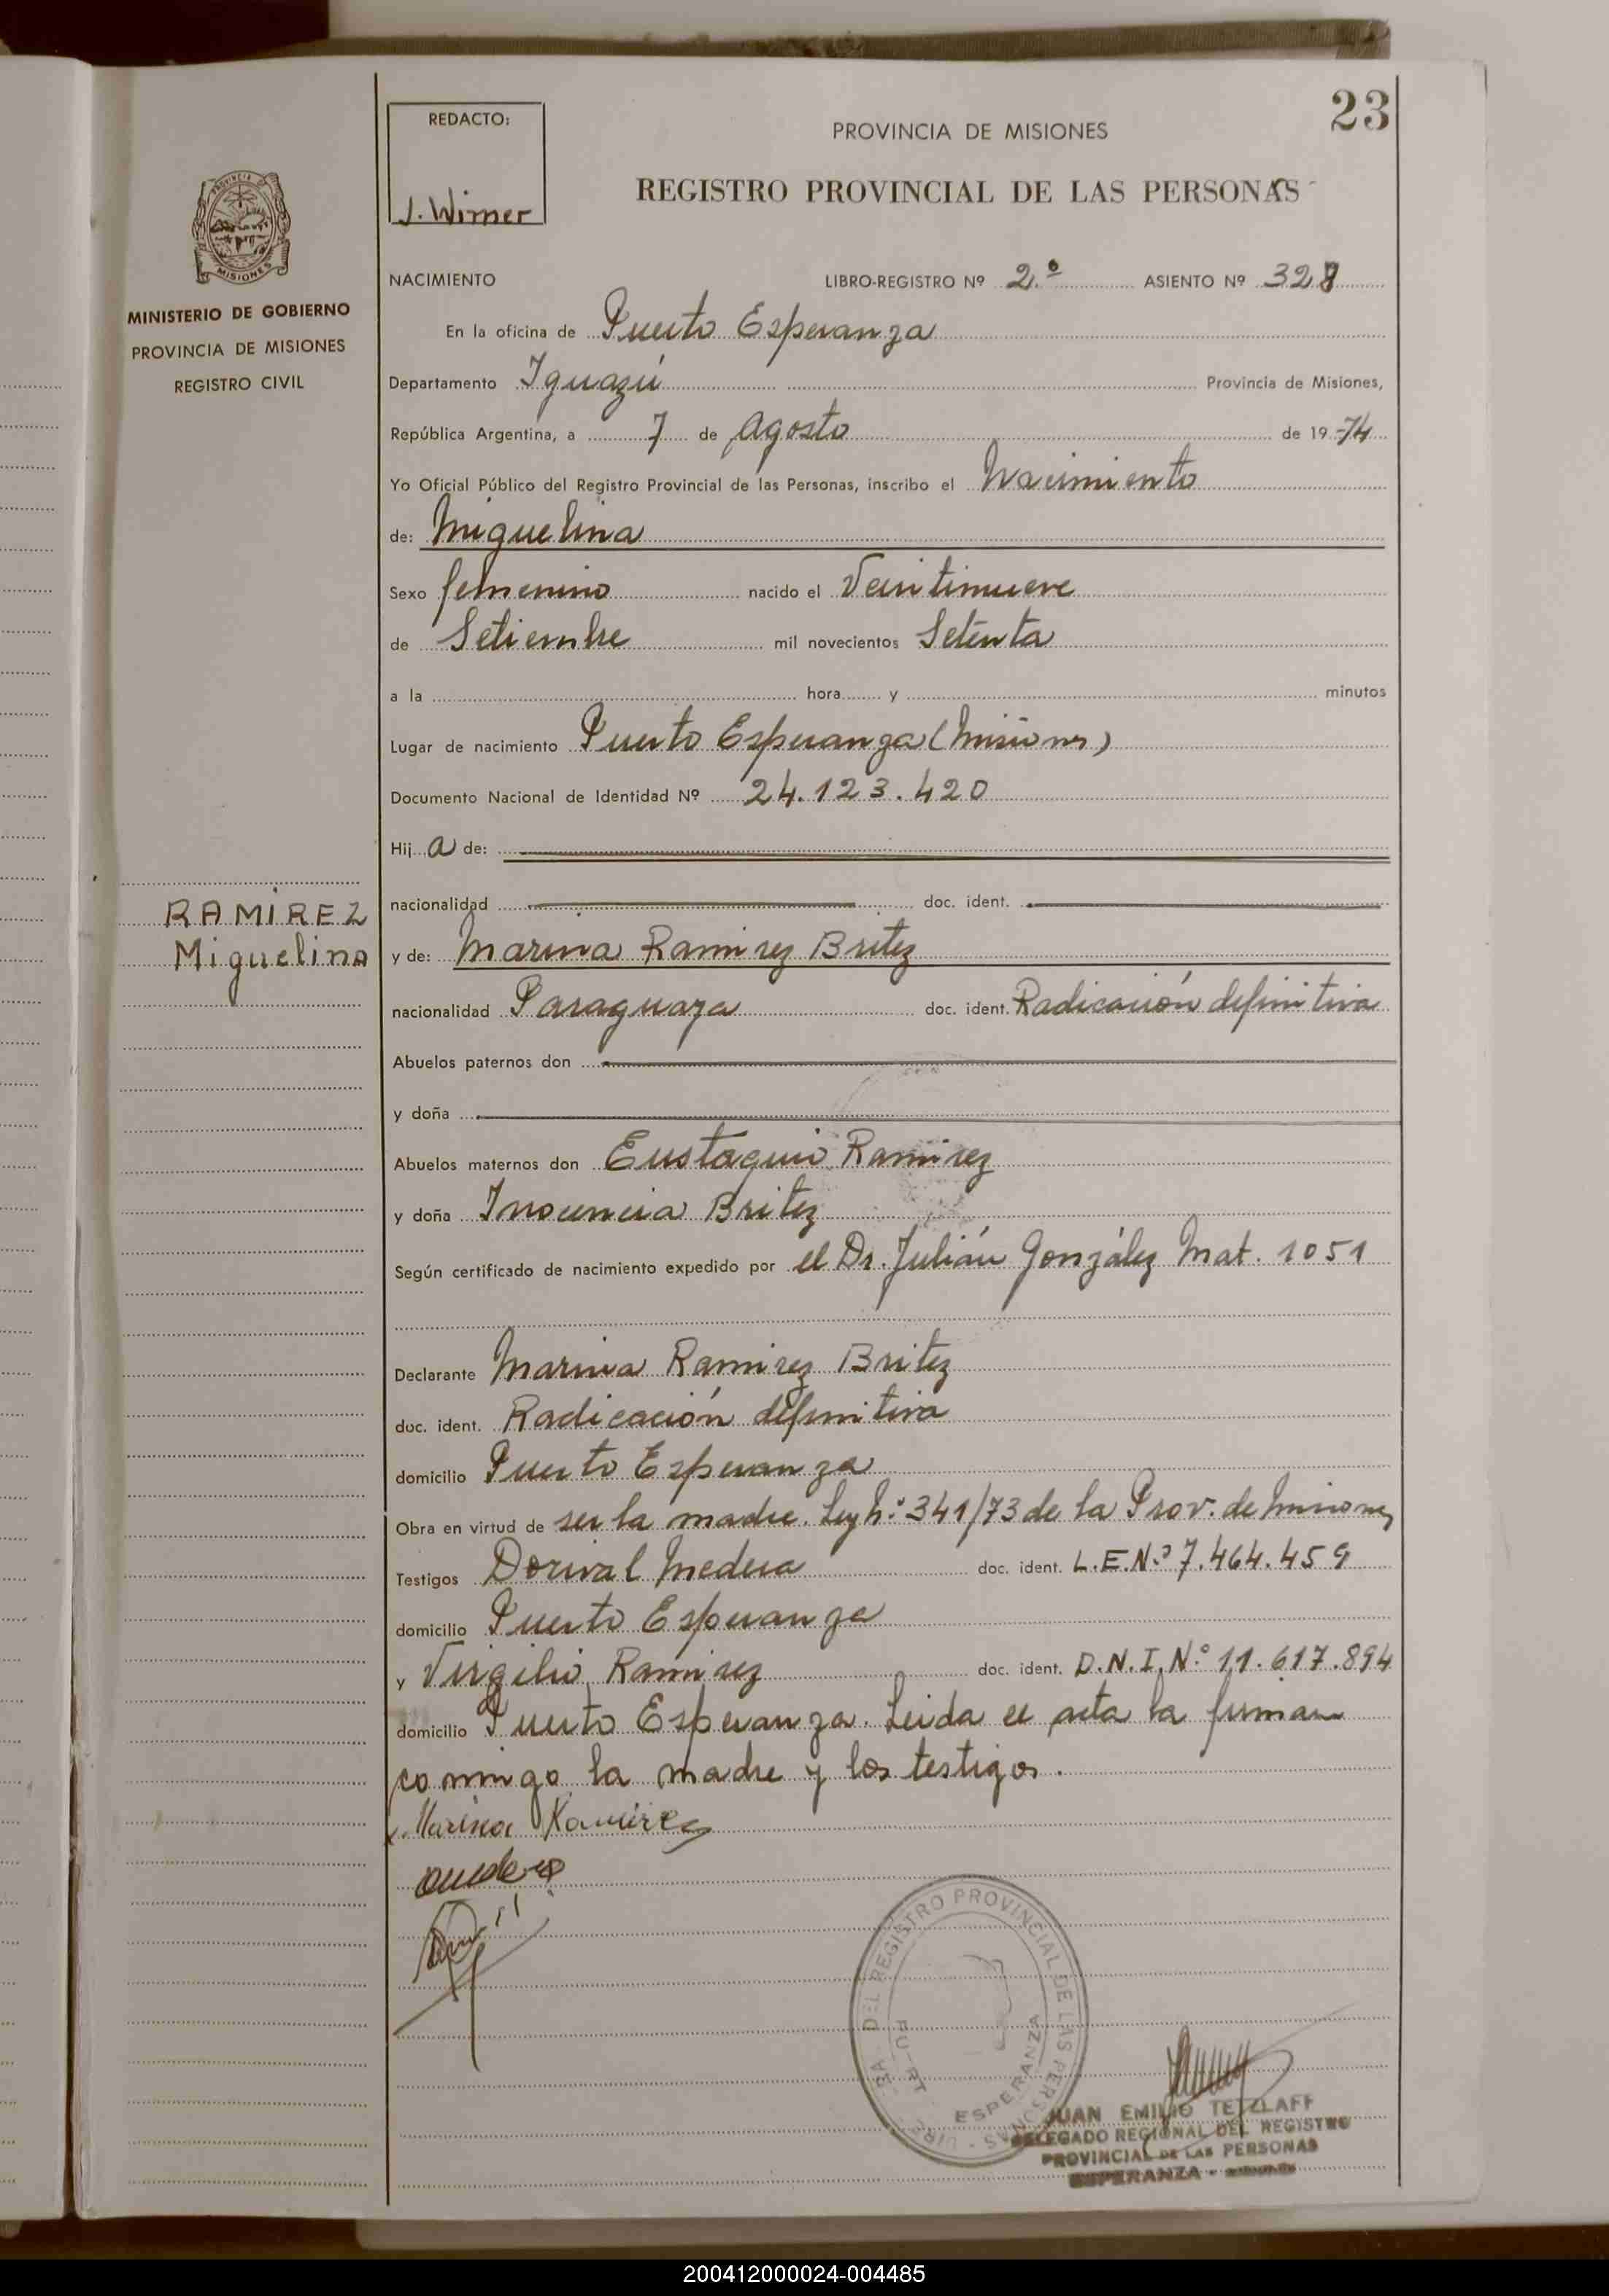 23
REDACTO:
J. Wirner
PROVINCIA DE MISIONES
REGISTRO PROVINCIAL DE LAS PERSONAS
PROVINCIA DE
MISIONES
MINISTERIO DE GOBIERNO
PROVINCIA DE MISIONES
REGISTRO CIVIL
NACIMIENTO LIBRO-REGISTRO Nº 2.º ASIENTO Nº 328
En la oficina de Puerto Esperanza
Departamento Iguazú Provincia de Misiones,
República Argentina, a 7 de Agosto de 19 74
Yo Oficial Público del Registro Provincial de las Personas, inscribo el Nacimiento
de: Miguelina
Sexo femenino nacido el Veintinueve
de Setiembre mil novecientos Setenta
a la hora y minutos
Lugar de nacimiento Puerto Esperanza (Misiones)
Documento Nacional de Identidad Nº 24.123.420
Hij a de:
nacionalidad doc. ident.
RAMIREZ
Miguelina
y de: Marina Ramirez Britez
nacionalidad Paraguaya doc. ident. Radicación definitiva
Abuelos paternos don
y doña
Abuelos maternos don Eustaquio Ramirez
y doña Inocencia Britez
Según certificado de nacimiento expedido por el Dr. Julián González Mat. 1051
Declarante Marina Ramirez Britez
doc. ident. Radicación definitiva
domicilio Puerto Esperanza
Obra en virtud de ser la madre. Ley N.º 341/73 de la Prov. de Misiones
Testigos Dorival Medera doc. ident. L.E.N.º 7.464.459
domicilio Puerto Esperanza
y Virgilio Ramirez doc. ident. D.N.I.N.º 11.617.894
domicilio Puerto Esperanza. Leida el acta la firman
conmigo la madre y los testigos.
Marina Ramirez
DEL REGISTRO PROVINCIAL DE LAS PERSONAS
ESPERANZA
JUAN EMILIO TETZLAFF
DELEGADO REGIONAL DEL REGISTRO
PROVINCIAL DE LAS PERSONAS
ESPERANZA -
200412000024-004485